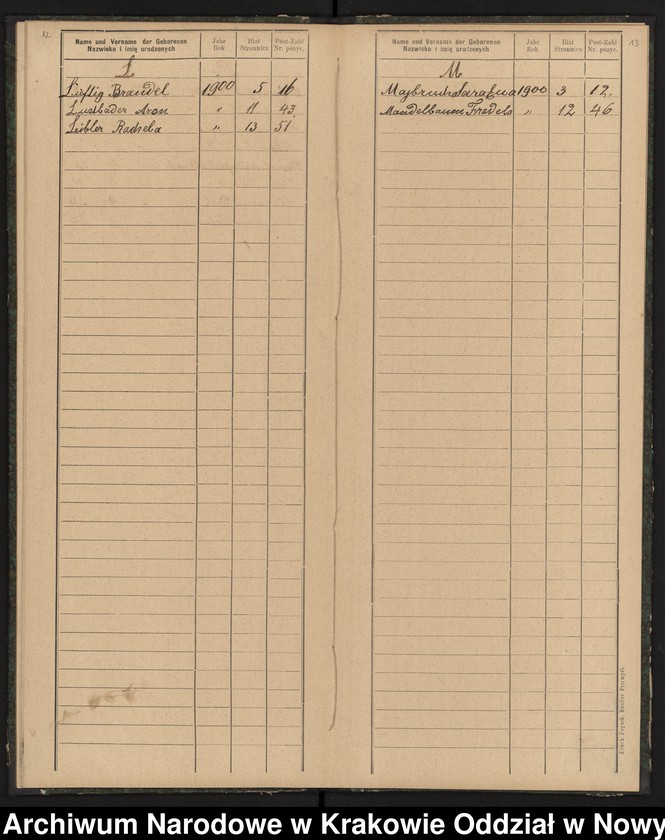 12
Name und Vorname der Geborenen
Nazwisko i imię urodzonych
Jahr
Rok
Blat
Stronnica
Post-Zahl
Nr. pozyc.
L
Brandel 1900 5 16
Lustbader Aron " 11 43
Leibler Rachela " 13 51
13
Name und Vorname der Geborenen
Nazwisko i imię urodzonych
Jahr
Rok
Blat
Stronnica
Post-Zahl
Nr. pozyc.
M
1900 3 12.
Mandelbaum " 12 46
Druck Popuch, Knoller Przemysl.
Archiwum Narodowe w Krakowie Oddział w Nowy